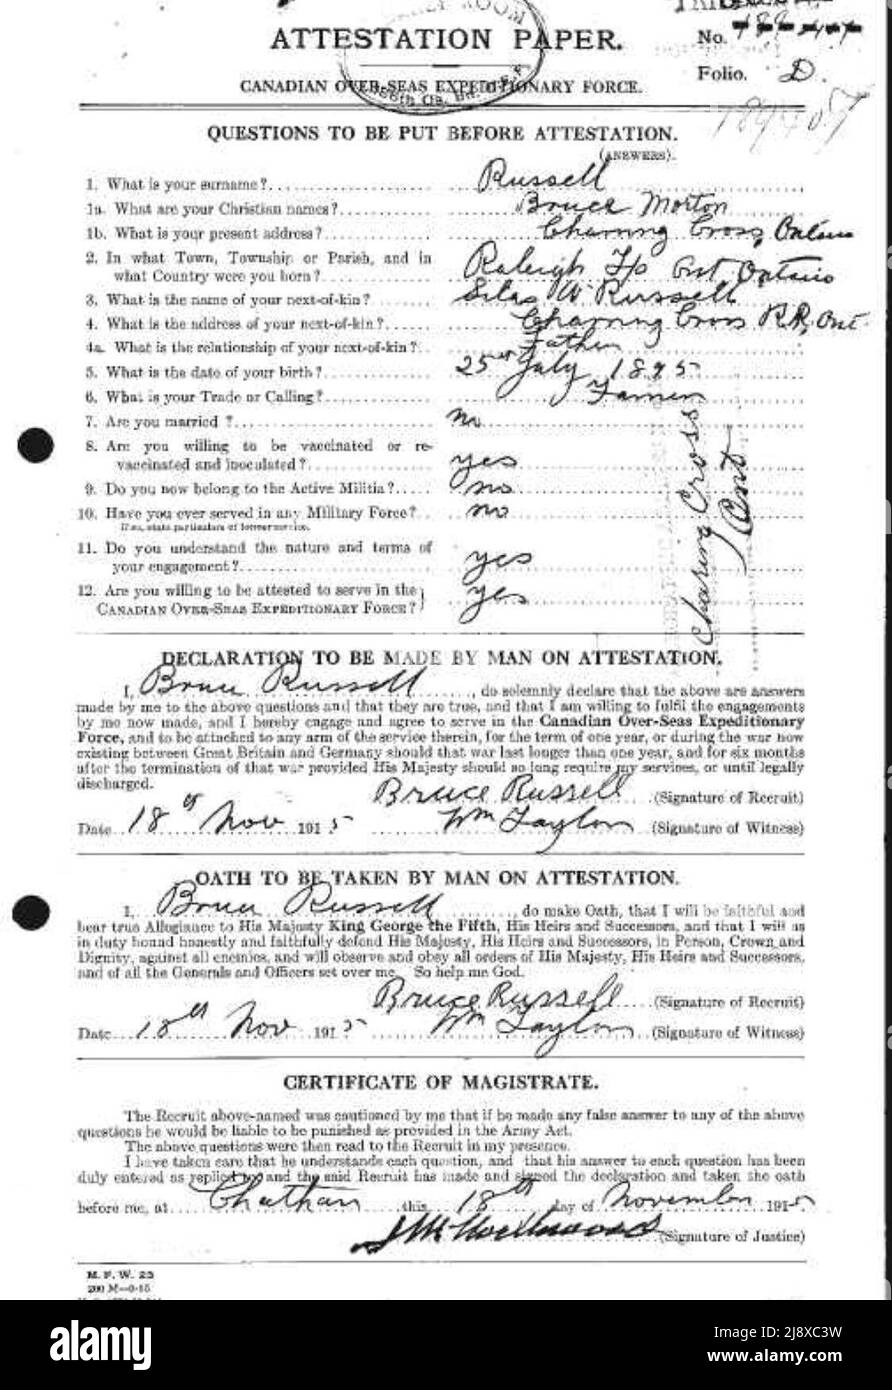 ORDERLY ROOM
ATTESTATION PAPER.
No.
Folio. D.
CANADIAN OVER-SEAS EXPEDITIONARY FORCE.
QUESTIONS TO BE PUT BEFORE ATTESTATION.
(ANSWERS).
1. What is your surname?.......... Russell
1a. What are your Christian names?.......... Bruce Morton
1b. What is your present address?.......... Charring Cross, Ontario
2. In what Town, Township or Parish, and in
what Country were you born?.......... Raleigh Tp Ont, Ontario
3. What is the name of your next-of-kin?.......... Silas W Russell
4. What is the address of your next-of-kin?.......... Charring Cross R.R, Ont.
4a. What is the relationship of your next-of-kin?.. Father
5. What is the date of your birth?.......... 25th July 1895
6. What is your Trade or Calling?.......... Farmer
7. Are you married ?.......... no
8. Are you willing to be vaccinated or re-
vaccinated and inoculated?.......... yes
9. Do you now belong to the Active Militia?.... no
10. Have you ever served in any Military Force?.. no
If so, state particulars of former service.
11. Do you understand the nature and terms of
your engagement?.......... yes
12. Are you willing to be attested to serve in the
CANADIAN OVER-SEAS EXPEDITIONARY FORCE? yes
Charing Cross
Ont
DECLARATION TO BE MADE BY MAN ON ATTESTATION.
I, Bruce Russell, do solemnly declare that the above are answers
made by me to the above questions and that they are true, and that I am willing to fulfil the engagements
by me now made, and I hereby engage and agree to serve in the Canadian Over-Seas Expeditionary
Force, and to be attached to any arm of the service therein, for the term of one year, or during the war now
existing between Great Britain and Germany should that war last longer than one year, and for six months
after the termination of that war provided His Majesty should so long require my services, or until legally
discharged.
Bruce Russell (Signature of Recruit)
Date 18th Nov 1915 Wm Taylor (Signature of Witness)
OATH TO BE TAKEN BY MAN ON ATTESTATION.
I, Bruce Russell, do make Oath, that I will be faithful and
bear true Allegiance to His Majesty King George the Fifth, His Heirs and Successors, and that I will as
in duty bound honestly and faithfully defend His Majesty, His Heirs and Successors, in Person, Crown and
Dignity, against all enemies, and will observe and obey all orders of His Majesty, His Heirs and Successors,
and of all the Generals and Officers set over me. So help me God.
Bruce Russell (Signature of Recruit)
Date 18th Nov 1915 Wm Taylor (Signature of Witness)
CERTIFICATE OF MAGISTRATE.
The Recruit above-named was cautioned by me that if he made any false answer to any of the above
questions he would be liable to be punished as provided in the Army Act.
The above questions were then read to the Recruit in my presence.
I have taken care that he understands each question, and that his answer to each question has been
duly entered as replied to, and the said Recruit has made and signed the declaration and taken the oath
before me, at Chatham this 18th day of November 1915
(Signature of Justice)
M. F. W. 23
200 M—9-15
alamy
Image ID: 2J8XC3W
www.alamy.com